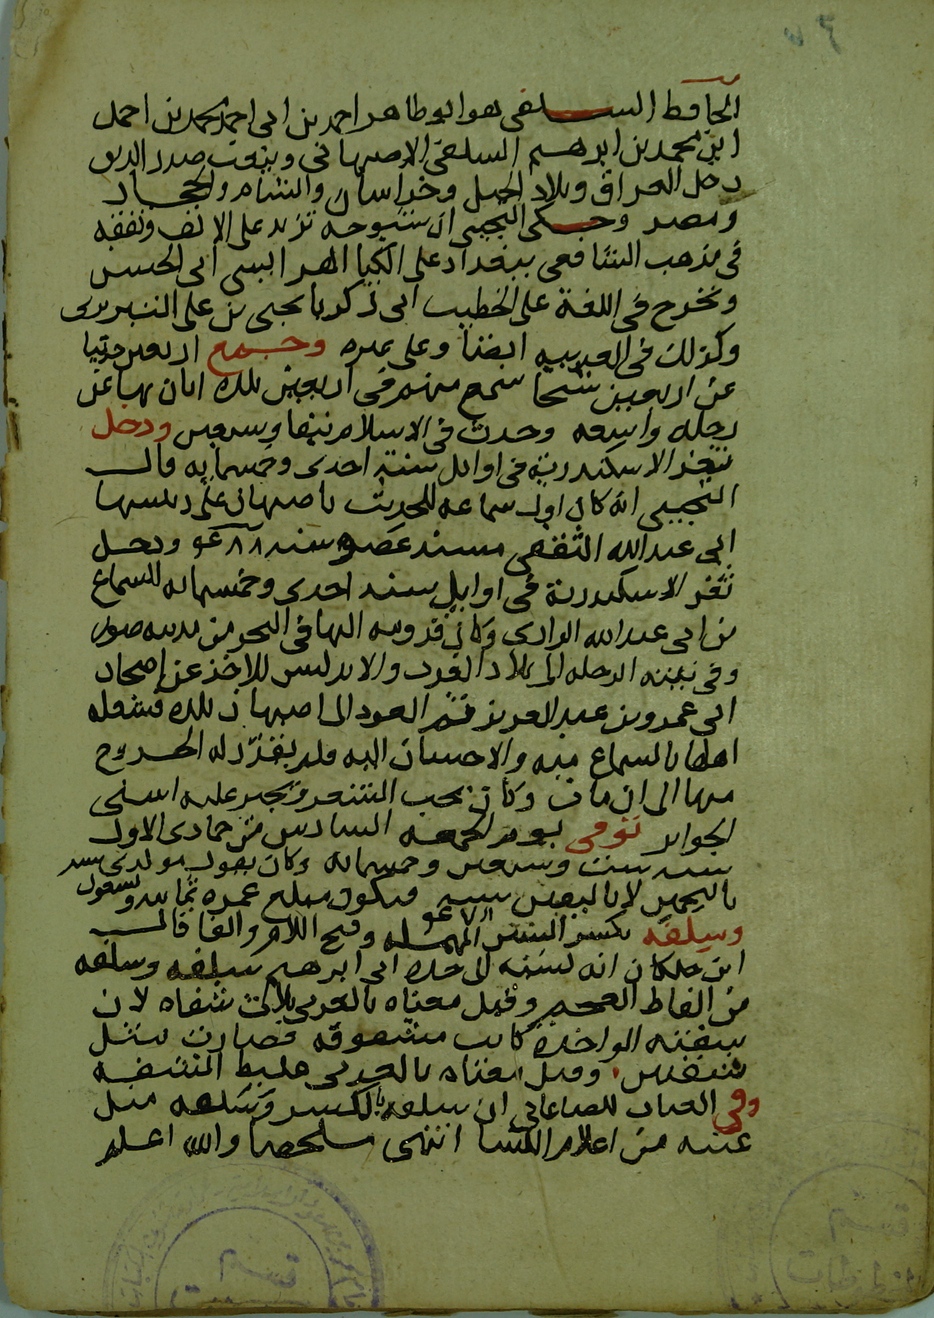 الحافظ السلفى هو ابو طاهر احمد بن ابى احمد محمد بن احمد
ابن محمد بن ابرهيم السلفى الاصبهانى وينعت صدر الدين
دخل العراق وبلاد الجبل وخراسان والشام والحجاز
ومصر وحكى التجيبى ان شيوخه تزيد على الالف وتفقه
فى مذهب الشافعى ببغداد على الكيا الهراسى ابى الحسن
وتخرج فى اللغة على الخطيب ابى زكريا يحيى بن على التبريزى
وكذلك فى العربيه ايضا وعلى غيره وجمع اربعين حديثا
عن اربعين شيخا سمع منهم فى اربعين بلده ابان بها عن
رحله واسعه وحدث فى الاسلام نيفا وسبعين ودخل
ثغر الاسكندرية فى اوايل سنة احدى وخمسمايه قال
التجيبى انه كان اول سماعه للحديث باصبهان على رييسها
ابى عبد الله الثقفى مسند عصره سنه ٤٨٨ ودخل
ثغر الاسكندرية فى اوايل سنه احدى وخمسمايه للسماع
من ابى عبد الله الرازى وكان قدومه اليها فى البحر من مدينه صور
وفى نيته الرحله الى بلاد الغرب والاندلس للاخذ عن اصحاب
ابى عمرو بن عبد العزيز ثم العود الى اصبهان بلده فشغله
اهلها بالسماع منه والاحسان اليه ولم يقدّر له الخروج
منها الى ان مات وكان يحب الشعر ويجيز عليه اسنى
الجوايز توفى يوم الجمعه السادس من جمادى الاول
سنه ست وسبعين وخمسمايه وكان يقول مولدى سنه
بالتخمين لا باليقين سنه فيكون مبلغ عمره ثمانيه وتسعون
وسِلفَه بكسر السين المهمله وفتح اللام والفا قال
ابن خلكان انه نسبه الى جده ابى ابرهيم سلفه وسلفه
من الفاظ العجم وقيل معناه بالعربى ثلاث شفاه لان
شفته الواحدة كانت مشقوقه فصارت مثل
شفتين وقيل معناه بالعربى غليظ الشفه
وفى العباب للصاغانى ان سلفه بالكسر وسلفه مثل
عنبه من اعلام النسا انتهى ملخصا والله اعلم